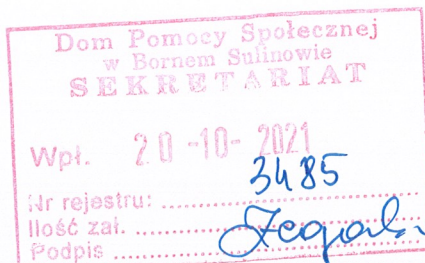 Dom Pomocy Społecznej
w Bornem Sulinowie
SEKRETARIAT
Wpł. 20 -10- 2021
Nr rejestru: 3485
Ilość zał.
Podpis